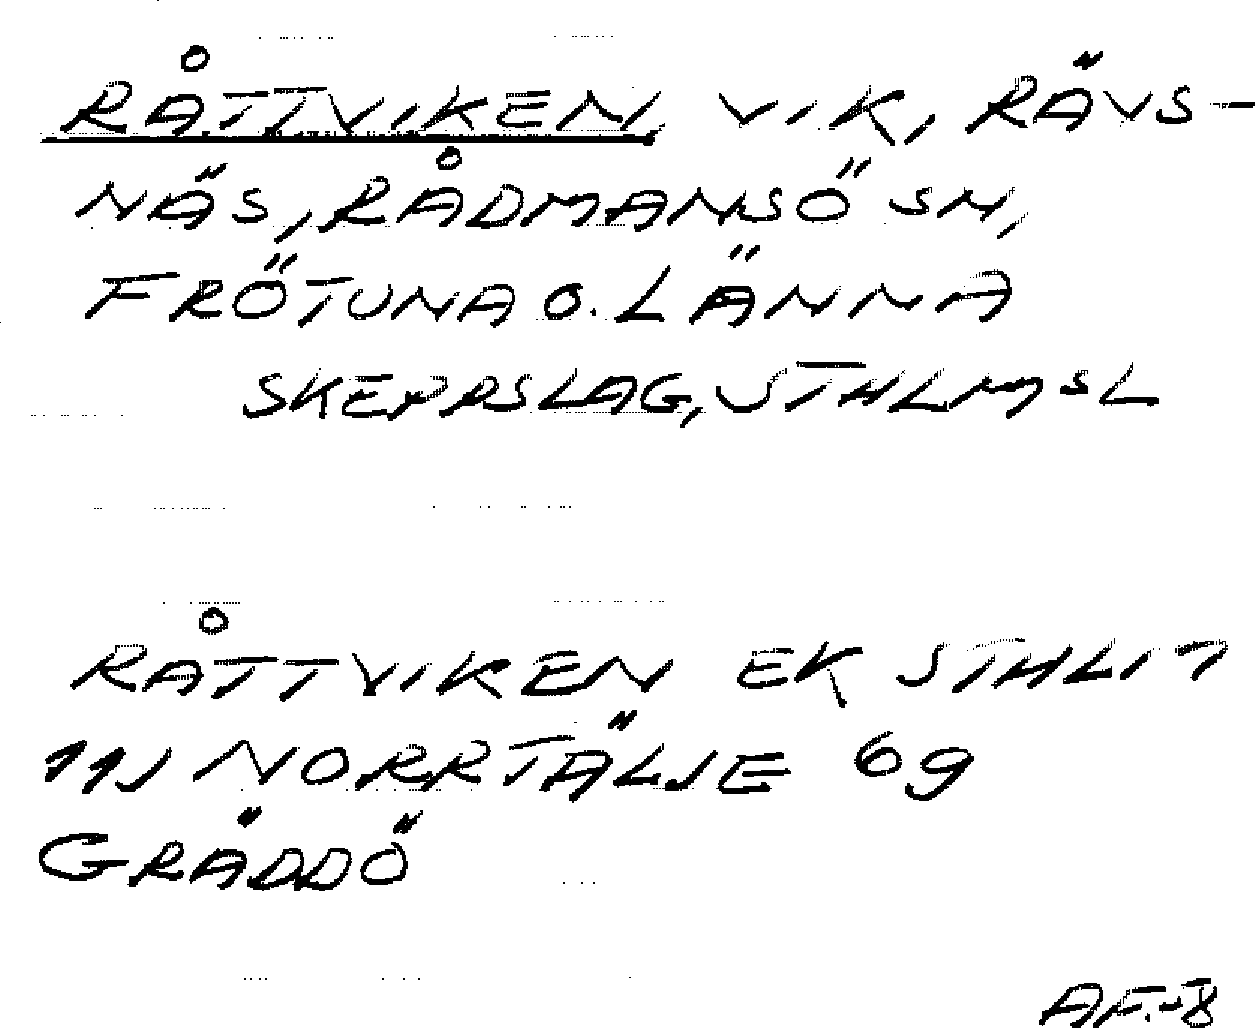 RÅTTVIKEN, VIK, RÄVS-
NÄS, RÅDMANSÖ SN,
FRÖTUNA O. LÄNNA
SKEPPSLAG, STHLMSL
RÅTTVIKEN EK STHLM
11J NORRTÄLJE 69
GRÄDDÖ